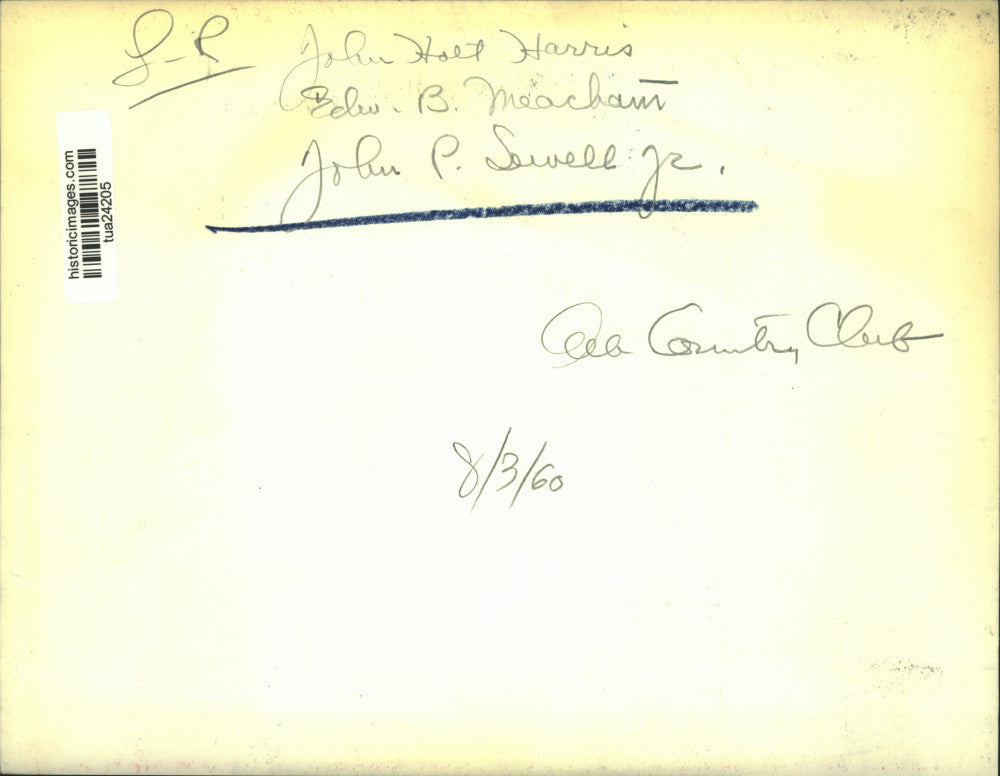 L-R John Holt Harris
Edw. B. Meacham
John P. Sewell Jr.
historicimages.com
tua24205
Country Club
8/3/60